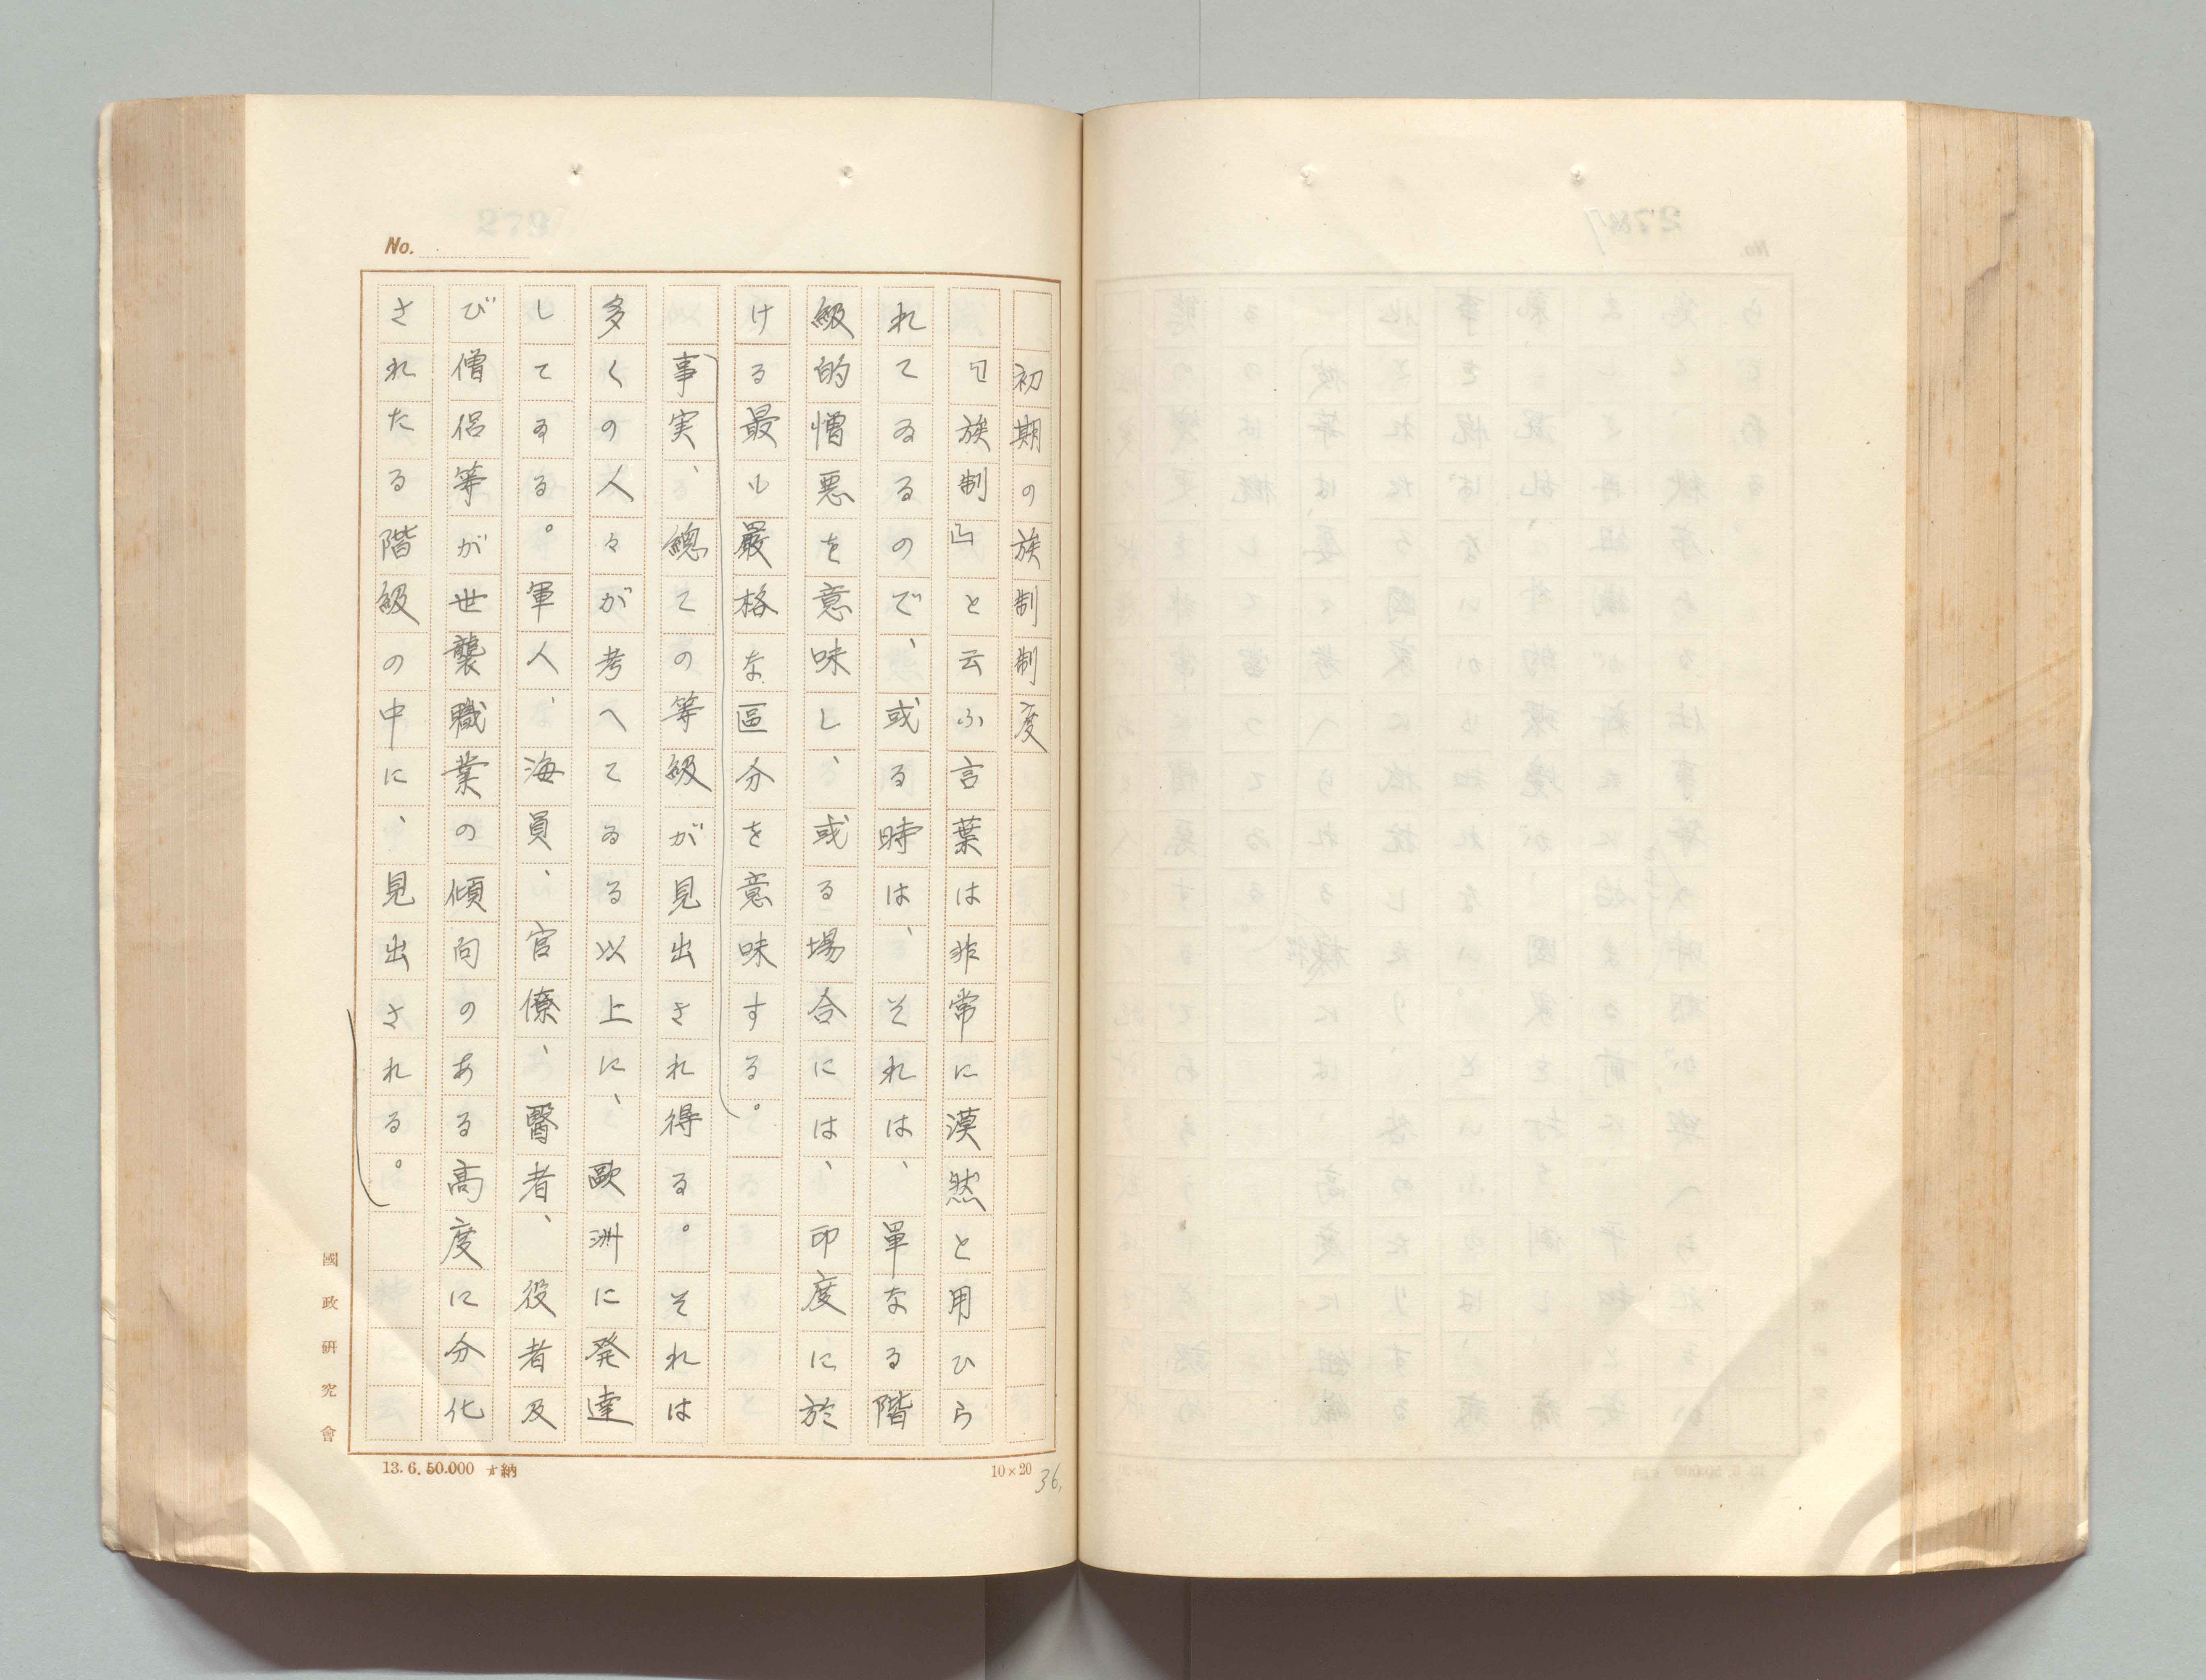 No.
初期の族制制度
『族制』と云ふ言葉は非常に漠然と用ひら
れてゐるので、或る時は、それは、單なる階
級的憎悪を意味し、或る場合には、印度に於
ける最も嚴格な區分を意味する。
事実、總ての等級が見出され得る。それは
多くの人々が考へてゐる以上に、歐洲に発達
してゐる。軍人、海員、官僚、醫者、役者及
び僧侶等が世襲職業の傾向のある高度に分化
されたる階級の中に、見出される。
國政研究會
13.6.50.000 納
10×20
36.